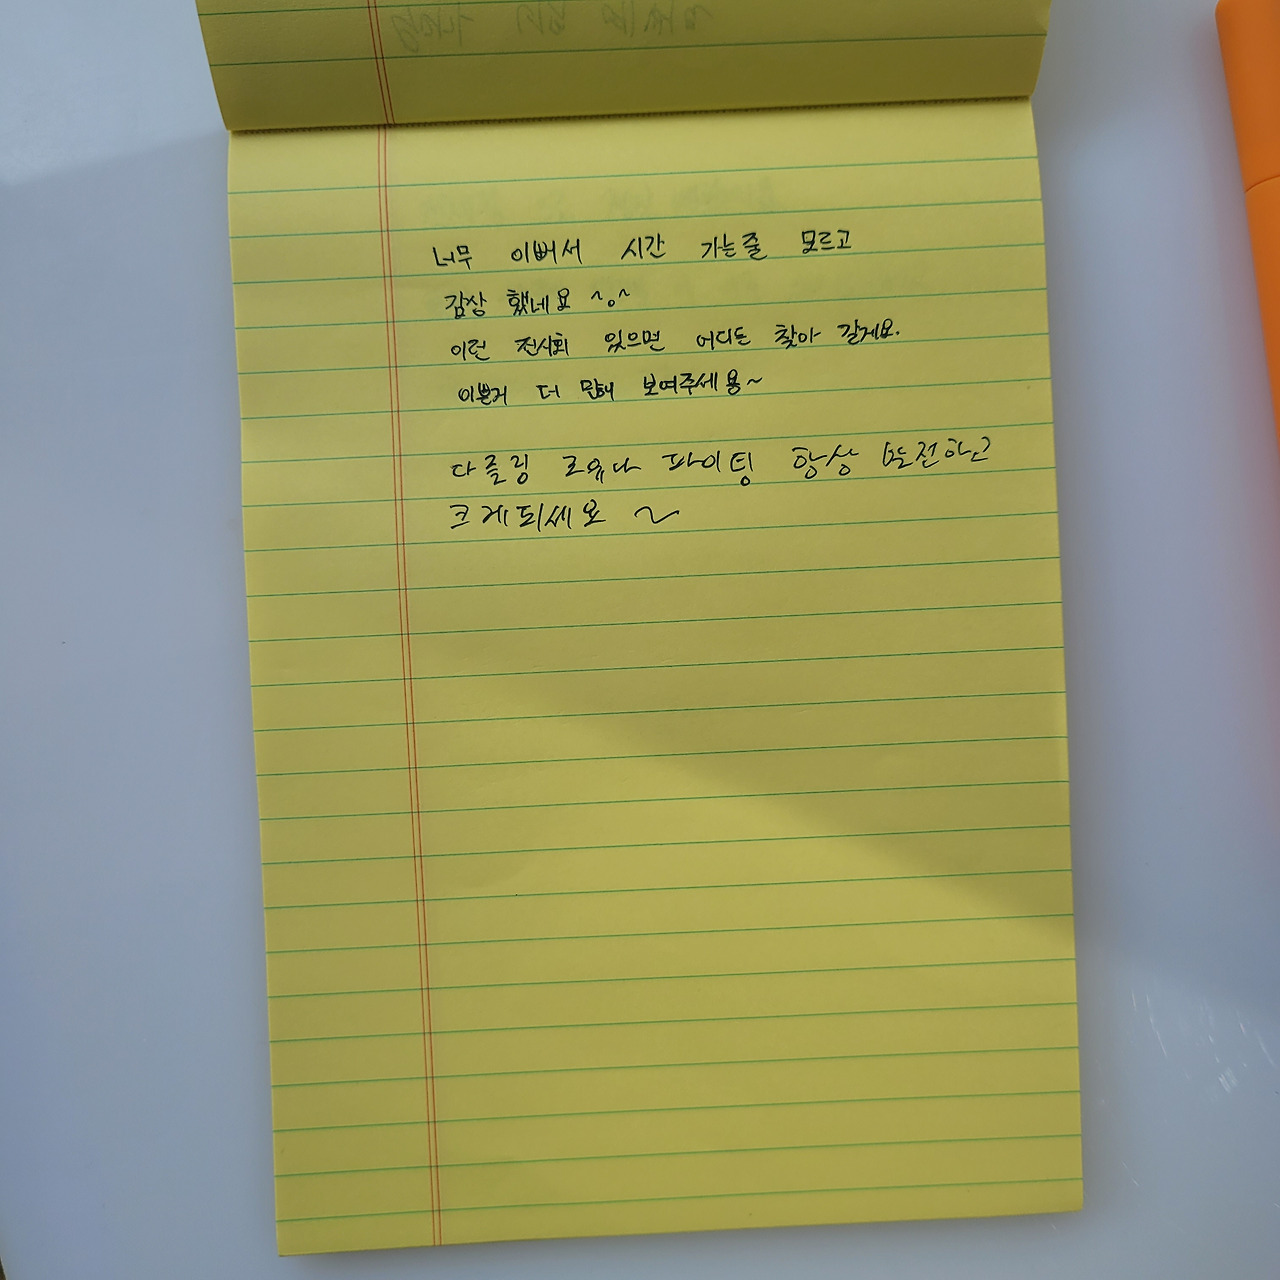 너무 이뻐서 시간 가는줄 모르고
감상 했네요 ^o^
이런 전시회 있으면 어디든 찾아 갈게요.
이쁜거 더 많이 보여주세용~
다즐링 로유나 파이팅 항상 도전하고
크게되세요 ~